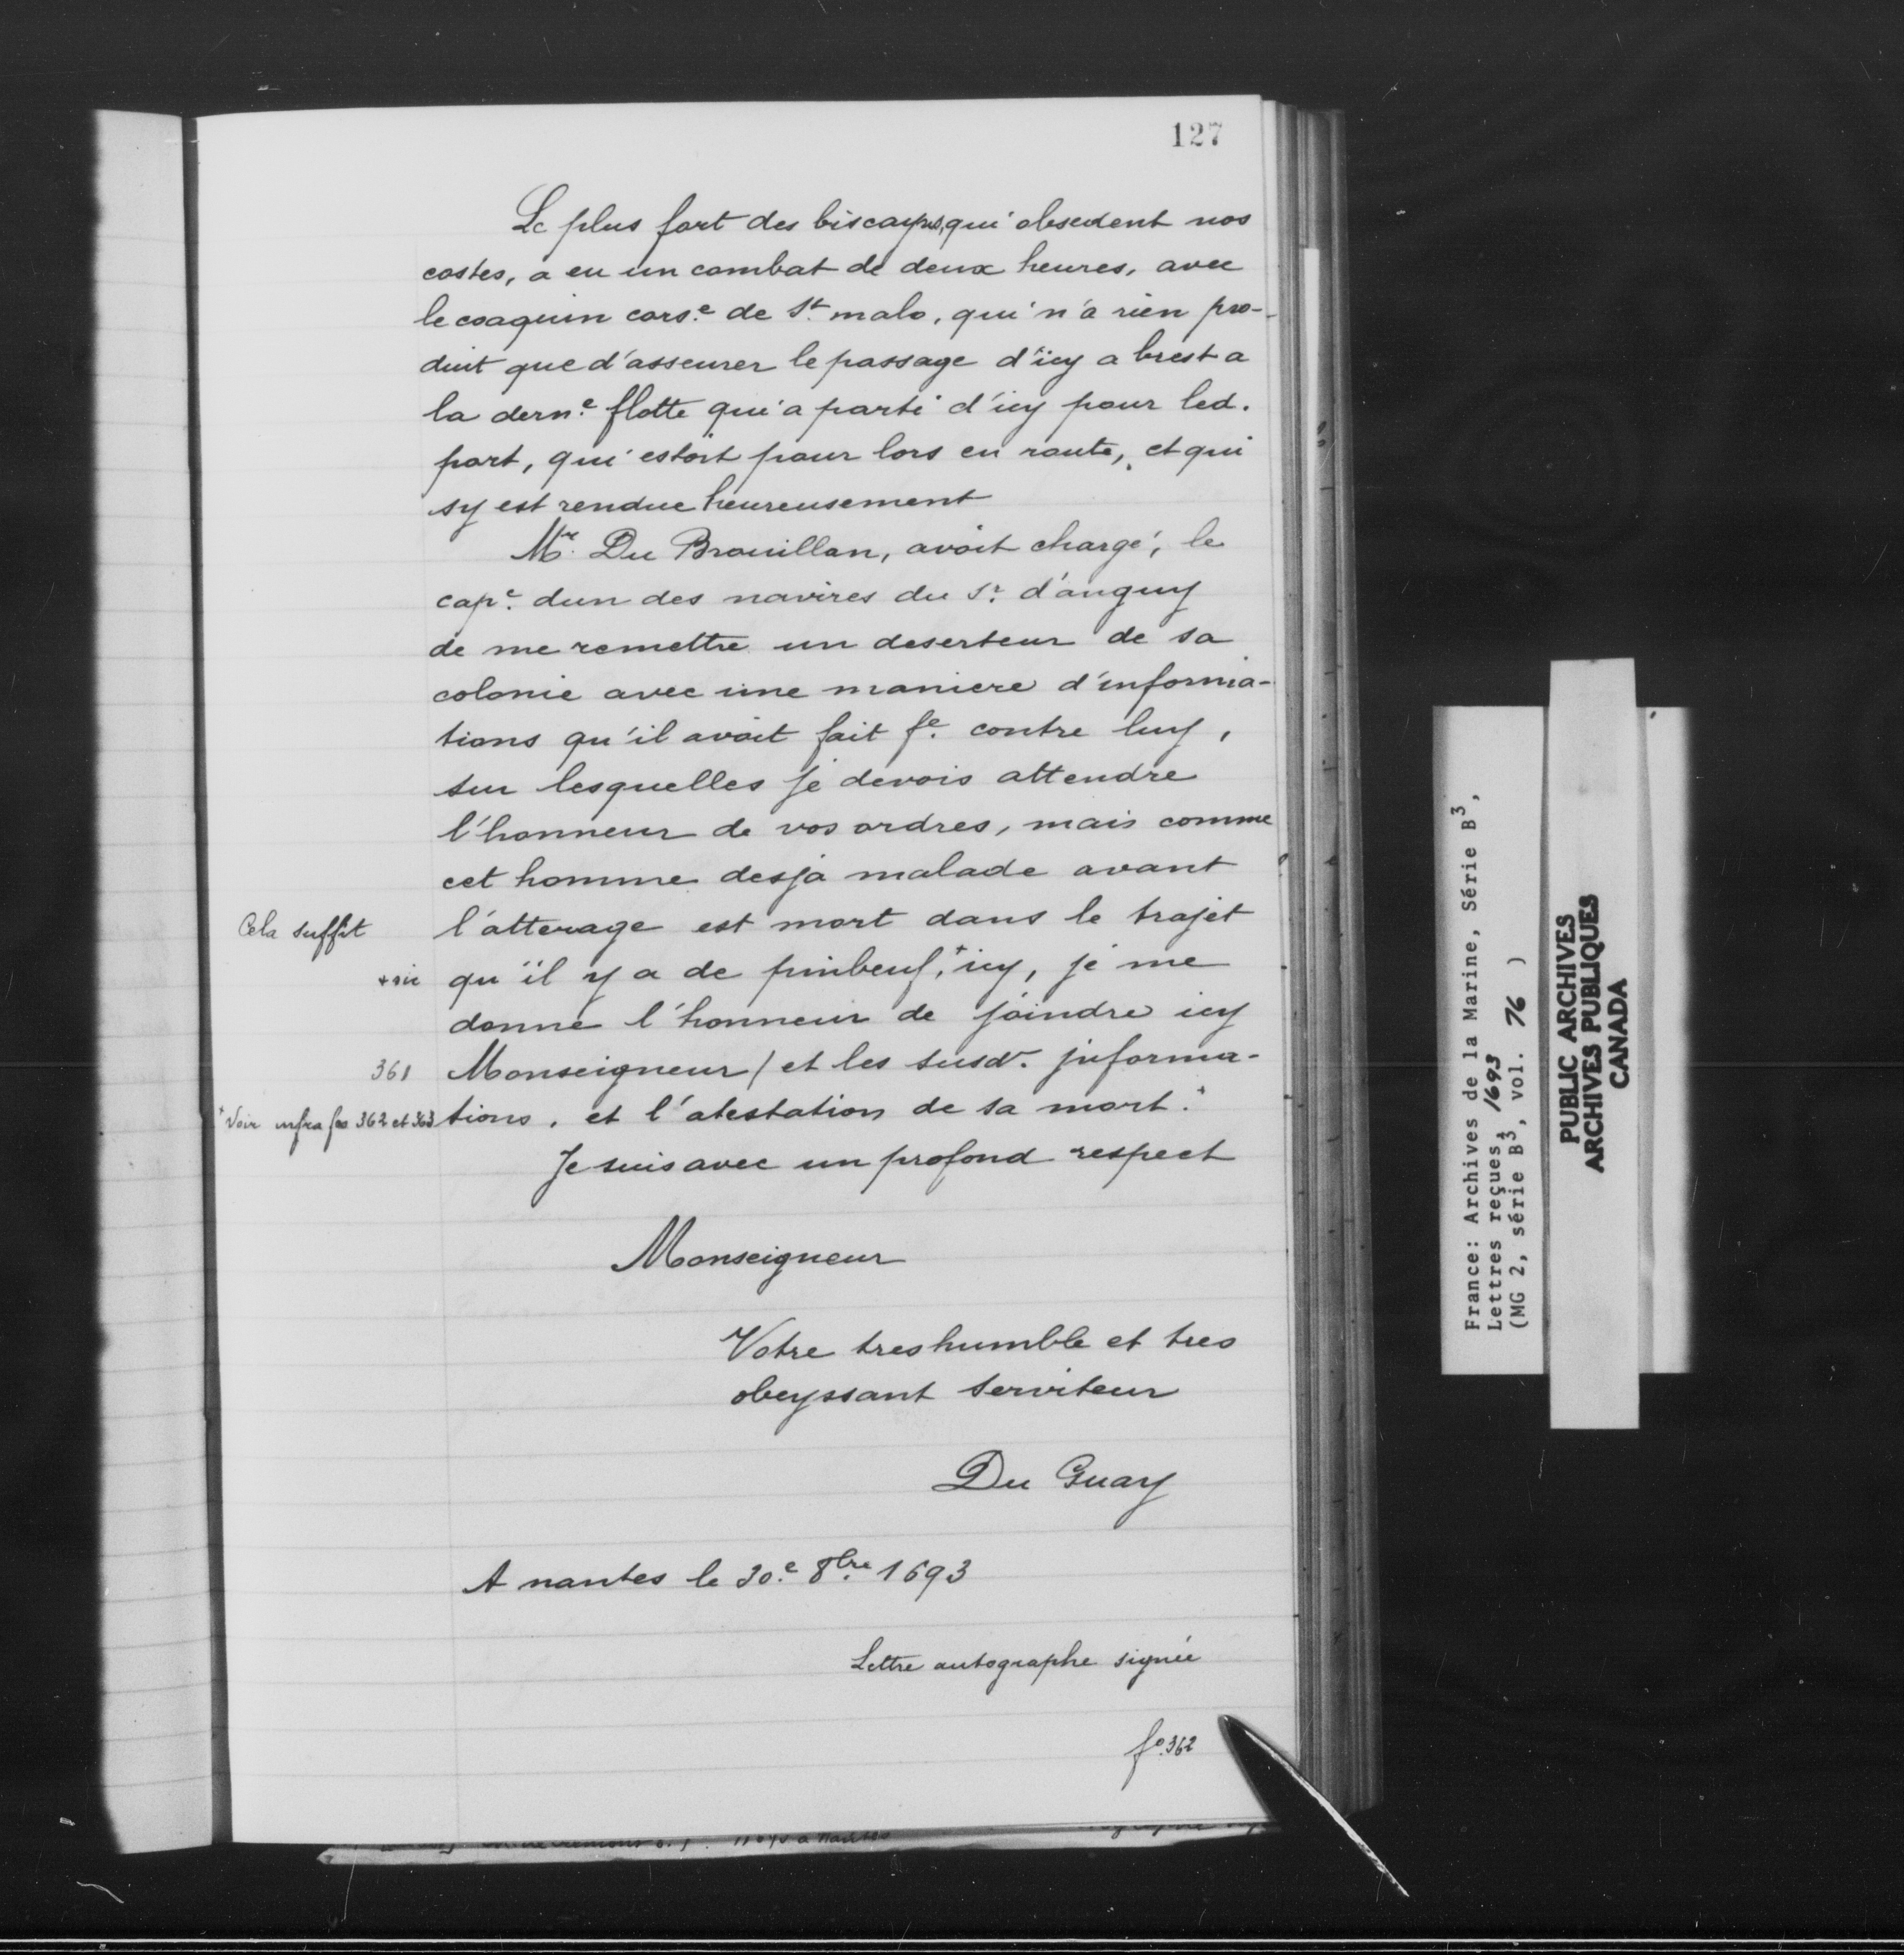 127
Le plus fort des biscayns, qui obsedent nos
costes, a eu un combat de deux heures, avec
le coaquin cors.e de St. malo, qui n'a rien pro-
duit que d'asseurer le passage d'icy a brest a
la dern.e flotte qui a parti d'icy pour led.
port, qui estoit pour lors en route, et qui
sy est rendue heureusement
Mr. Du Brouillan, avoit chargé, le
cap.e dun des navires du Sr. d'anguy
de me remettre un deserteur de sa
colonie avec une maniere d'informa-
tions qu'il avoit fait fe. contre luy,
sur lesquelles je devois attendre
l'honneur de vos ordres, mais comme
cet homme desja malade avant
Cela suffit
l'atterage est mort dans le trajet
+ sic
qu'il y a de pinbeuf,+ icy, je me
donne l'honneur de joindre icy
361
Monseigneur / et les susd. jnforma-
+ Voir infra fos 362 et 363
tions, et l'atestation de sa mort.+
Je suis avec un profond respect
Monseigneur
Votre tres humble et tres
obeyssant serviteur
Du Guay
A nantes le 30.e 8bre 1693
Lettre autographe signée
fo. 362
France: Archives de la Marine, Série B3,
Lettres reçues, 1693
(MG 2, série B3, vol. 76 )
PUBLIC ARCHIVES
ARCHIVES PUBLIQUES
CANADA